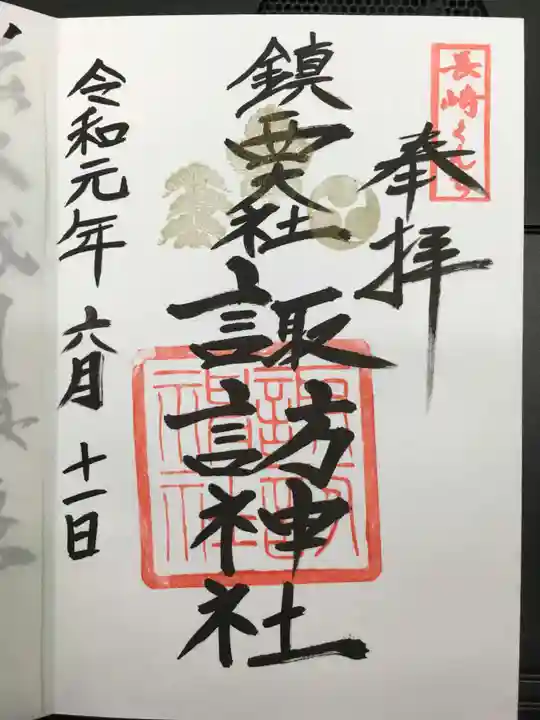 長崎くんち
奉拝
鎮西大社
諏訪神社
令和元年 六月 十一日